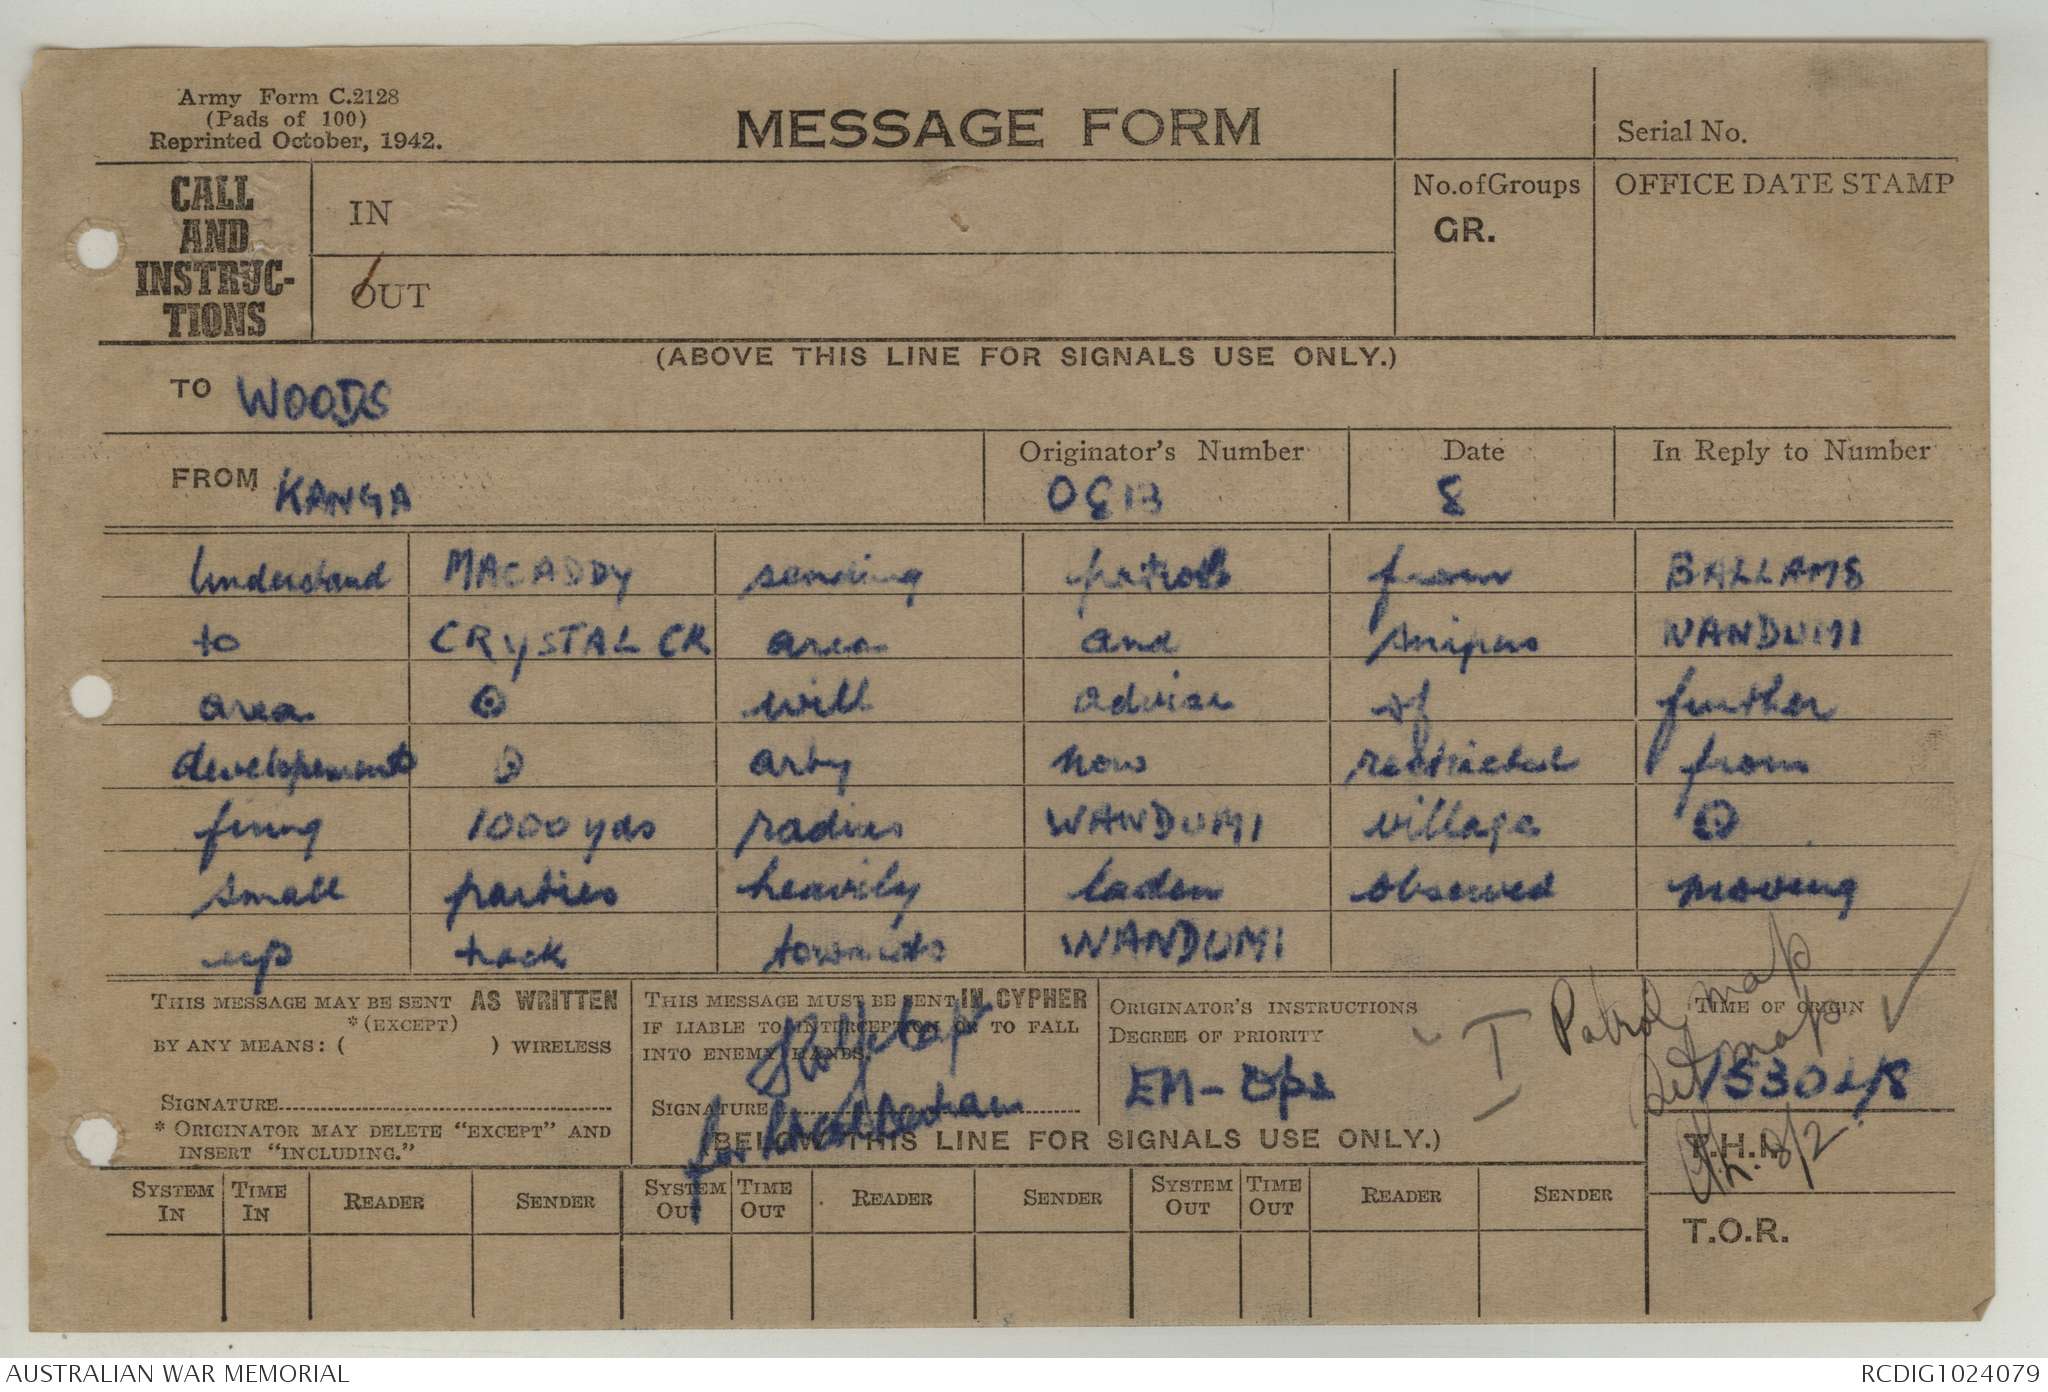 Army Form C.2128
(Pads of 100)
Reprinted October, 1942.
MESSAGE FORM
Serial No.
CALL AND INSTRUC-TIONS
IN
OUT
No. of Groups
GR.
OFFICE DATE STAMP
(ABOVE THIS LINE FOR SIGNALS USE ONLY.)
TO WOODS
FROM KANGA
Originator's Number
Date
In Reply to Number
8
Understand MACADDY sending patrols from BALLAMS
to CRYSTAL CK area and snipers WANDUMI
area ⊙ will advise of further
developments ⊙ arty now restricted from
firing 1000 yds radius WANDUMI village ⊙
small parties heavily laden observed moving
up track towards WANDUMI
THIS MESSAGE MAY BE SENT AS WRITTEN
*(EXCEPT)
BY ANY MEANS: ( ) WIRELESS
SIGNATURE
* ORIGINATOR MAY DELETE "EXCEPT" AND
INSERT "INCLUDING."
THIS MESSAGE MUST BE SENT IN CYPHER
IF LIABLE TO INTERCEPTION OR TO FALL
INTO ENEMY HANDS.
Capt
SIGNATURE
for
ORIGINATOR'S INSTRUCTIONS
DEGREE OF PRIORITY
EM - Ops
I Patrol map
Sit map
TIME OF ORIGIN
1530
T.H.I.
8/2
T.O.R.
(BELOW THIS LINE FOR SIGNALS USE ONLY.)
SYSTEM IN
TIME IN
READER
SENDER
SYSTEM OUT
TIME OUT
READER
SENDER
SYSTEM OUT
TIME OUT
READER
SENDER
AUSTRALIAN WAR MEMORIAL
RCDIG1024079